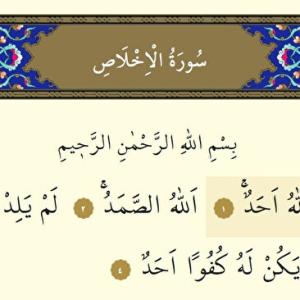 سُورَةُ الْاِخْلَاصِ
بِسْمِ اللهِ الرَّحْمٰنِ الرَّحِيْمِ
اَحَدٌۚ ١ اَللهُ الصَّمَدُۚ ٢ لَمْ يَلِدْ
يَكُنْ لَهُ كُفُوًا اَحَدٌ ٤